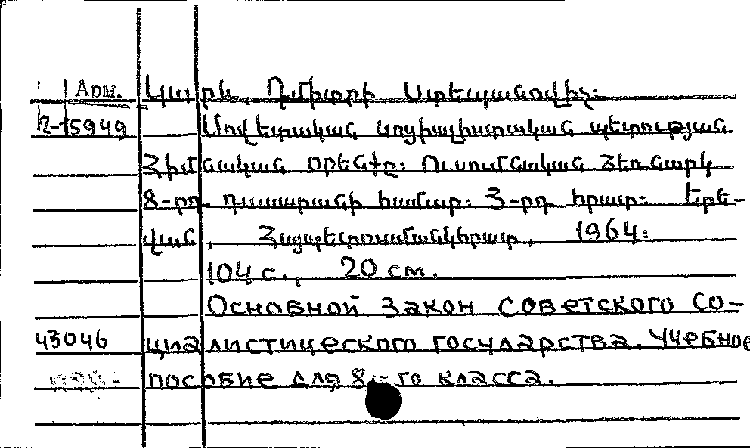 Арм. Կարև, Դմիտրի Ստեպանովիչ:
Ռ-15949 Սովետական սոցիալիստական պետության
Հիմնական օրենքը: Ուսումնական ձեռնարկ
8-րդ դասարանի համար: 3-րդ հրատ: Երե-
վան, Հայպետուսմանկհրատ, 1964:
104 с., 20 см.
Основной закон Советского Со-
43046 циалистического государства. Учебное
пособие для 8-го класса.